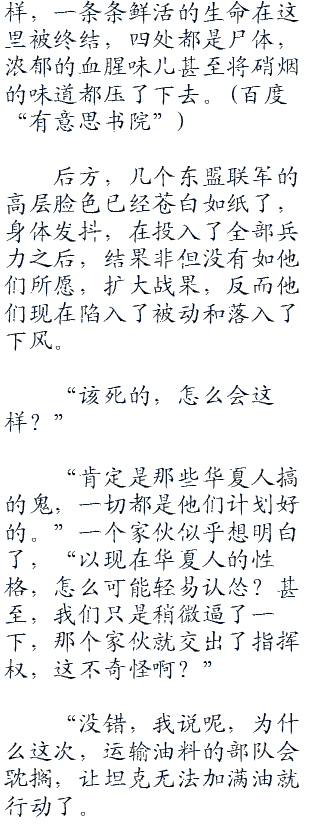 样，一条条鲜活的生命在这
里被终结，四处都是尸体，
浓郁的血腥味儿甚至将硝烟
的味道都压了下去。(百度
“有意思书院”)
后方，几个东盟联军的
高层脸色已经苍白如纸了，
身体发抖，在投入了全部兵
力之后，结果非但没有如他
们所愿，扩大战果，反而他
们现在陷入了被动和落入了
下风。
“该死的，怎么会这
样？”
“肯定是那些华夏人搞
的鬼，一切都是他们计划好
的。”一个家伙似乎想明白
了，“以现在华夏人的性
格，怎么可能轻易认怂？甚
至，我们只是稍微逼了一
下，那个家伙就交出了指挥
权，这不奇怪啊？”
“没错，我说呢，为什
么这次，运输油料的部队会
耽搁，让坦克无法加满油就
行动了。